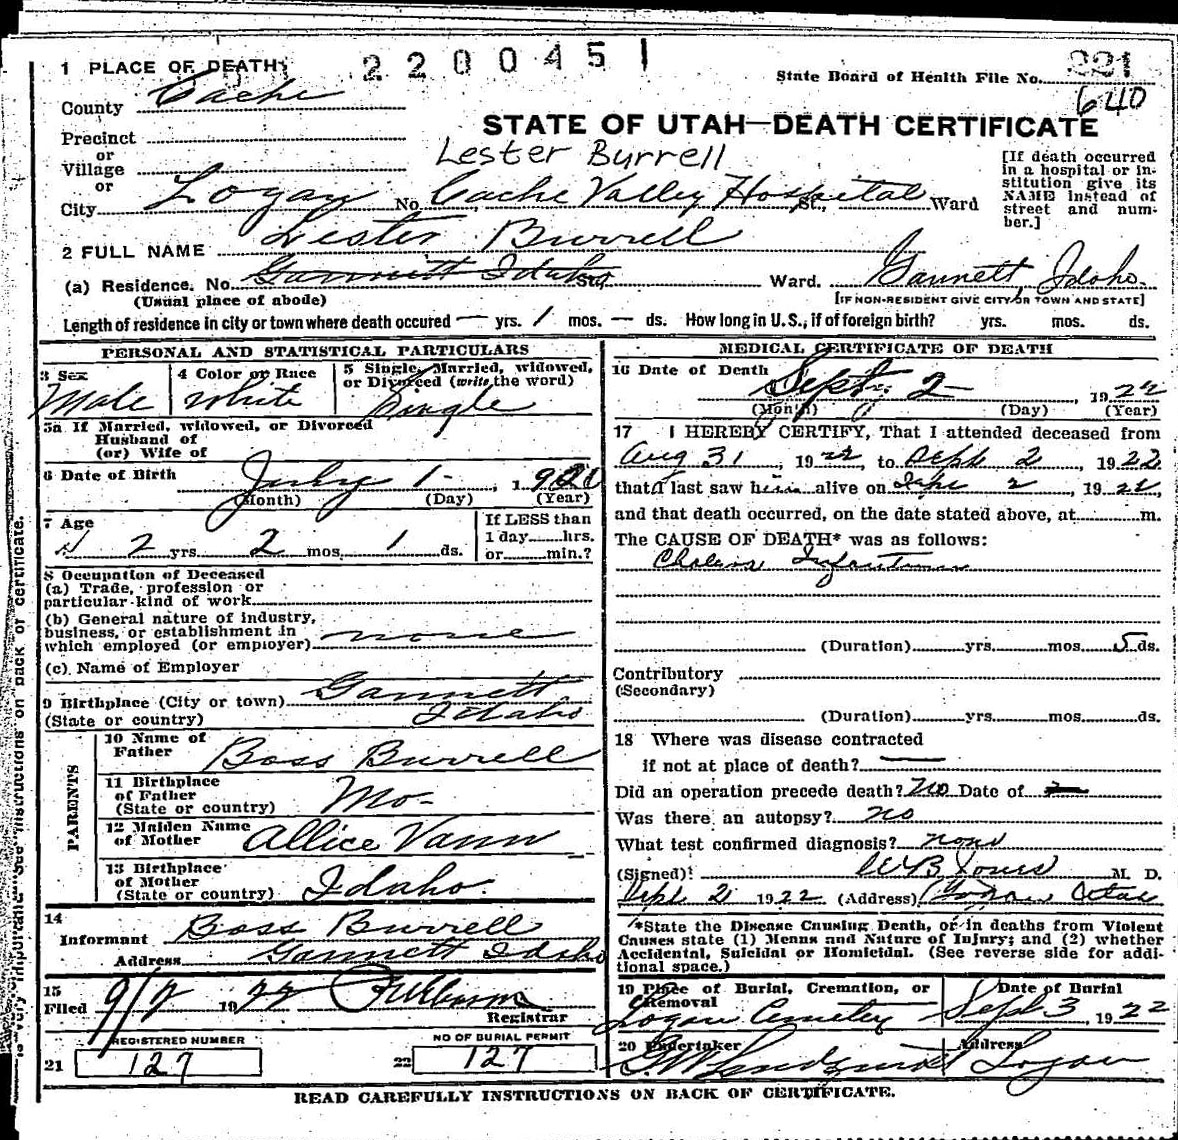 2200451
1 PLACE OF DEATH
State Board of Health File No. 221
640
County Cache
STATE OF UTAH—DEATH CERTIFICATE
Precinct
or
Village
or
Lester Burrell
[If death occurred
in a hospital or in-
stitution give its
NAME instead of
street and num-
ber.]
City Logan No. Cache Valley Hospital St., Ward
2 FULL NAME Lester Burrell
(a) Residence. No. Gannett Idaho St., Ward. Gannett, Idaho.
(Usual place of abode) [IF NON-RESIDENT GIVE CITY OR TOWN AND STATE]
Length of residence in city or town where death occured — yrs. 1 mos. — ds. How long in U. S., if of foreign birth? yrs. mos. ds.
PERSONAL AND STATISTICAL PARTICULARS
3 Sex
Male
4 Color or Race
White
5 Single, Married, widowed,
or Divorced (write the word)
Single
5a If Married, widowed, or Divorced
Husband of
(or) Wife of
6 Date of Birth July 1-, 1920
(Month) (Day) (Year)
7 Age
2 yrs. 2 mos. 1 ds.
If LESS than
1 day hrs.
or min.?
8 Occupation of Deceased
(a) Trade, profession or
particular kind of work
(b) General nature of industry,
business, or establishment in
which employed (or employer) none
(c) Name of Employer
9 Birthplace (City or town) Gannett
(State or country) Idaho
PARENTS
10 Name of
Father Boss Burrell
11 Birthplace
of Father
(State or country) Mo-
12 Maiden Name
of Mother Allice Vann
13 Birthplace
of Mother
(State or country) Idaho.
14
Informant Boss Burrell
Address Gannett Idaho
15
Filed 9/2 1922
Registrar
REGISTERED NUMBER
21 127
NO OF BURIAL PERMIT
22 127
MEDICAL CERTIFICATE OF DEATH
16 Date of Death
Sept, 2-, 1922
(Month) (Day) (Year)
17 I HEREBY CERTIFY, That I attended deceased from
Aug 31, 1922, to Sept 2, 1922
that I last saw him alive on Sept 2, 1922,
and that death occurred, on the date stated above, at m.
The CAUSE OF DEATH* was as follows:
Cholera Infantum
(Duration) yrs. mos. 5 ds.
Contributory
(Secondary)
(Duration) yrs. mos. ds.
18 Where was disease contracted
if not at place of death? —
Did an operation precede death? No Date of
Was there an autopsy? no
What test confirmed diagnosis? none
(Signed) M. D.
Sept 2 1922 (Address) Logan Utah
*State the Disease Causing Death, or in deaths from Violent
Causes state (1) Means and Nature of Injury; and (2) whether
Accidental, Suicidal or Homicidal. (See reverse side for addi-
tional space.)
19 Place of Burial, Cremation, or
Removal
Logan Cemetery
Date of Burial
Sept 3, 1922
20 Undertaker
Address
Logan
READ CAREFULLY INSTRUCTIONS ON BACK OF CERTIFICATE.